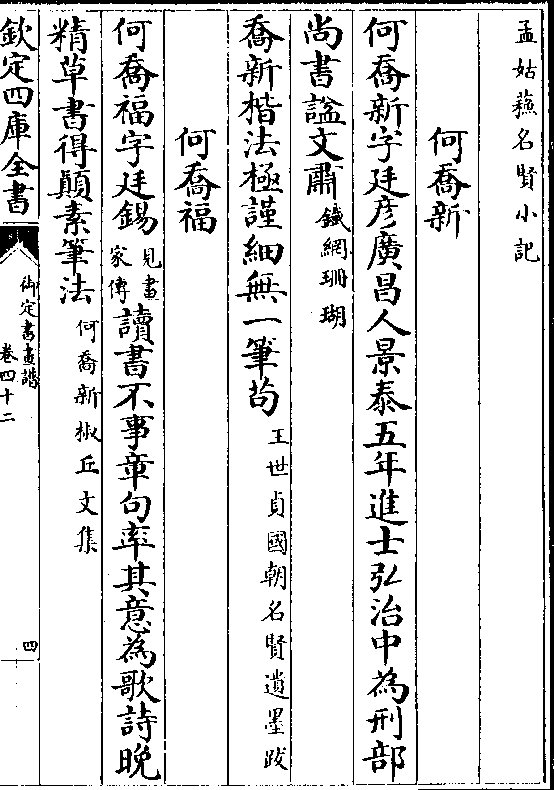 孟姑蘓名賢小記
何喬新
何喬新字廷彦廣昌人景泰五年進士弘治中為刑部
尚書諡文肅鐵網珊瑚
喬新楷法極謹細無一筆茍王世貞國朝名賢遺墨跋
何喬福
何喬福字廷錫見畫家傳讀書不事章句率其意為歌詩晩
精草書得顛素筆法何喬新椒丘文集
欽定四庫全書
御定書畫譜
卷四十二
四